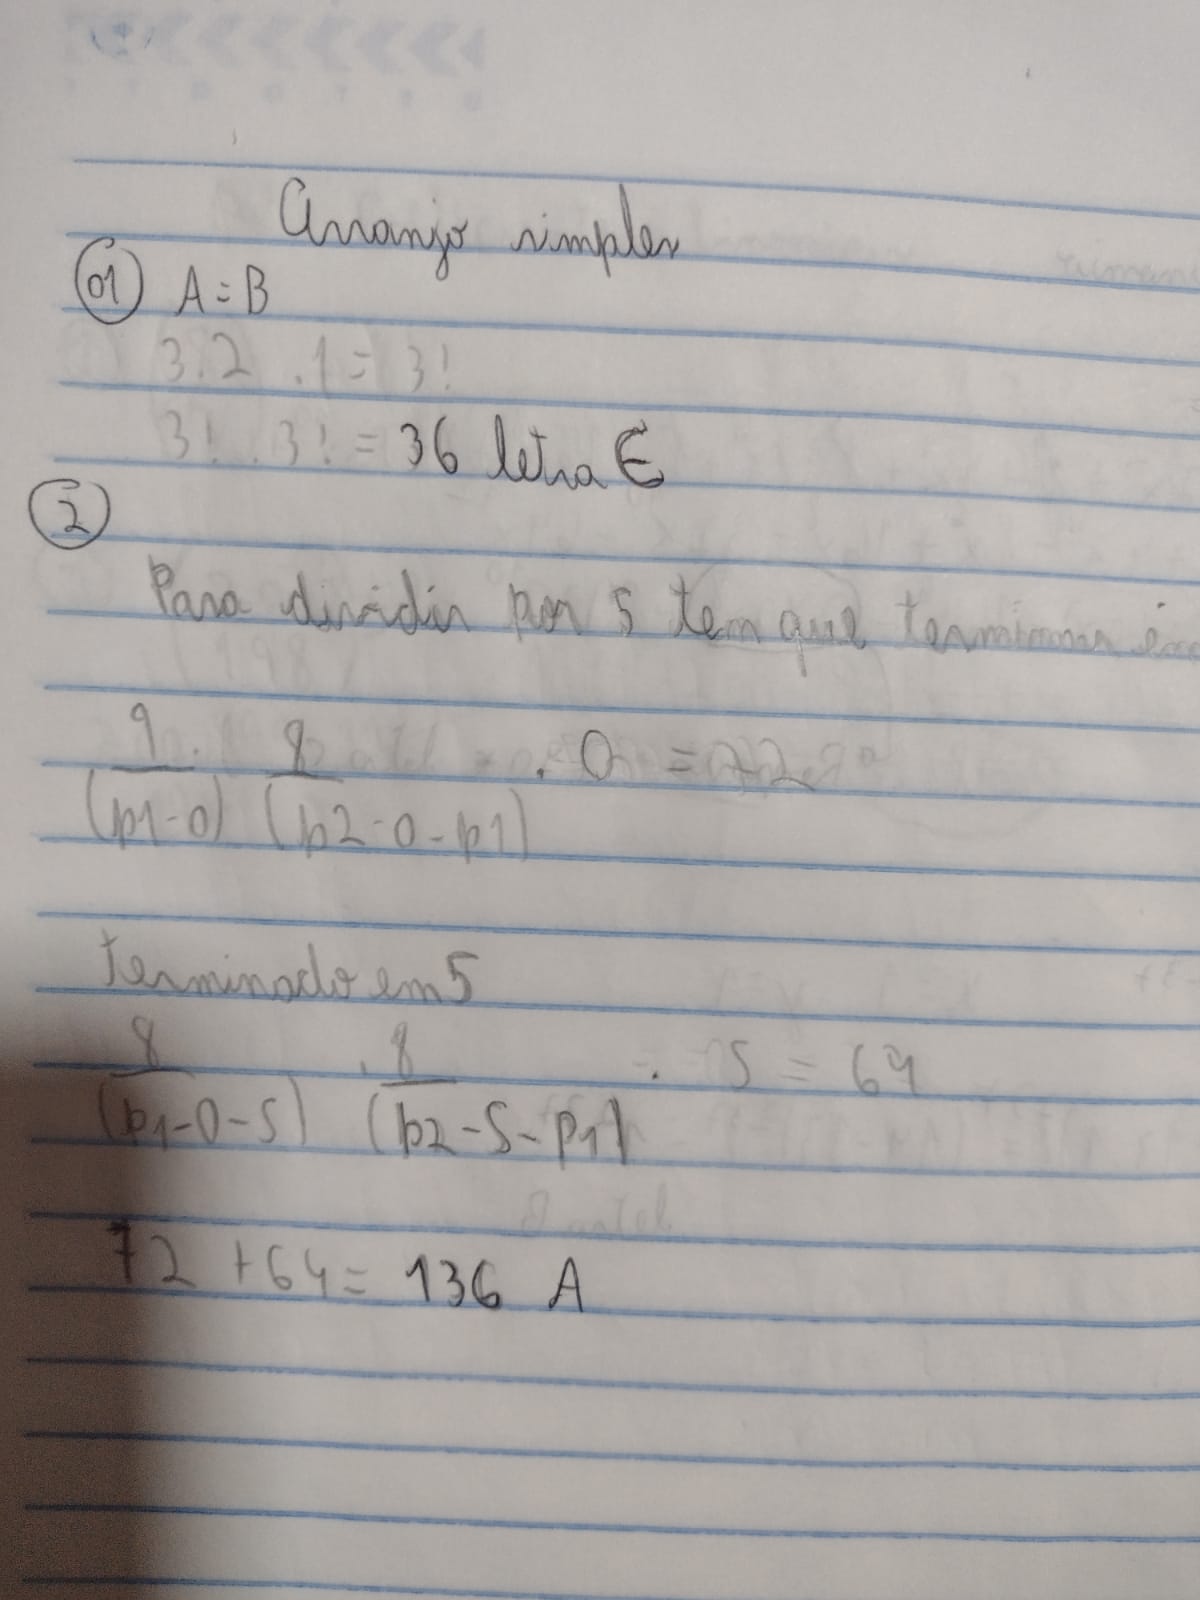 Arranjo simples
01 A = B
3.2 .1 = 3!
3! . 3! = 36 letra E
2
Para dividir por 5 tem que terminar em
9 . 8 . 0 = 72
(p1-0) (p2-0-p1)
terminado em 5
8 . 8 . 5 = 64
(p1-0-5) (p2-5-p1)
72 + 64 = 136 A